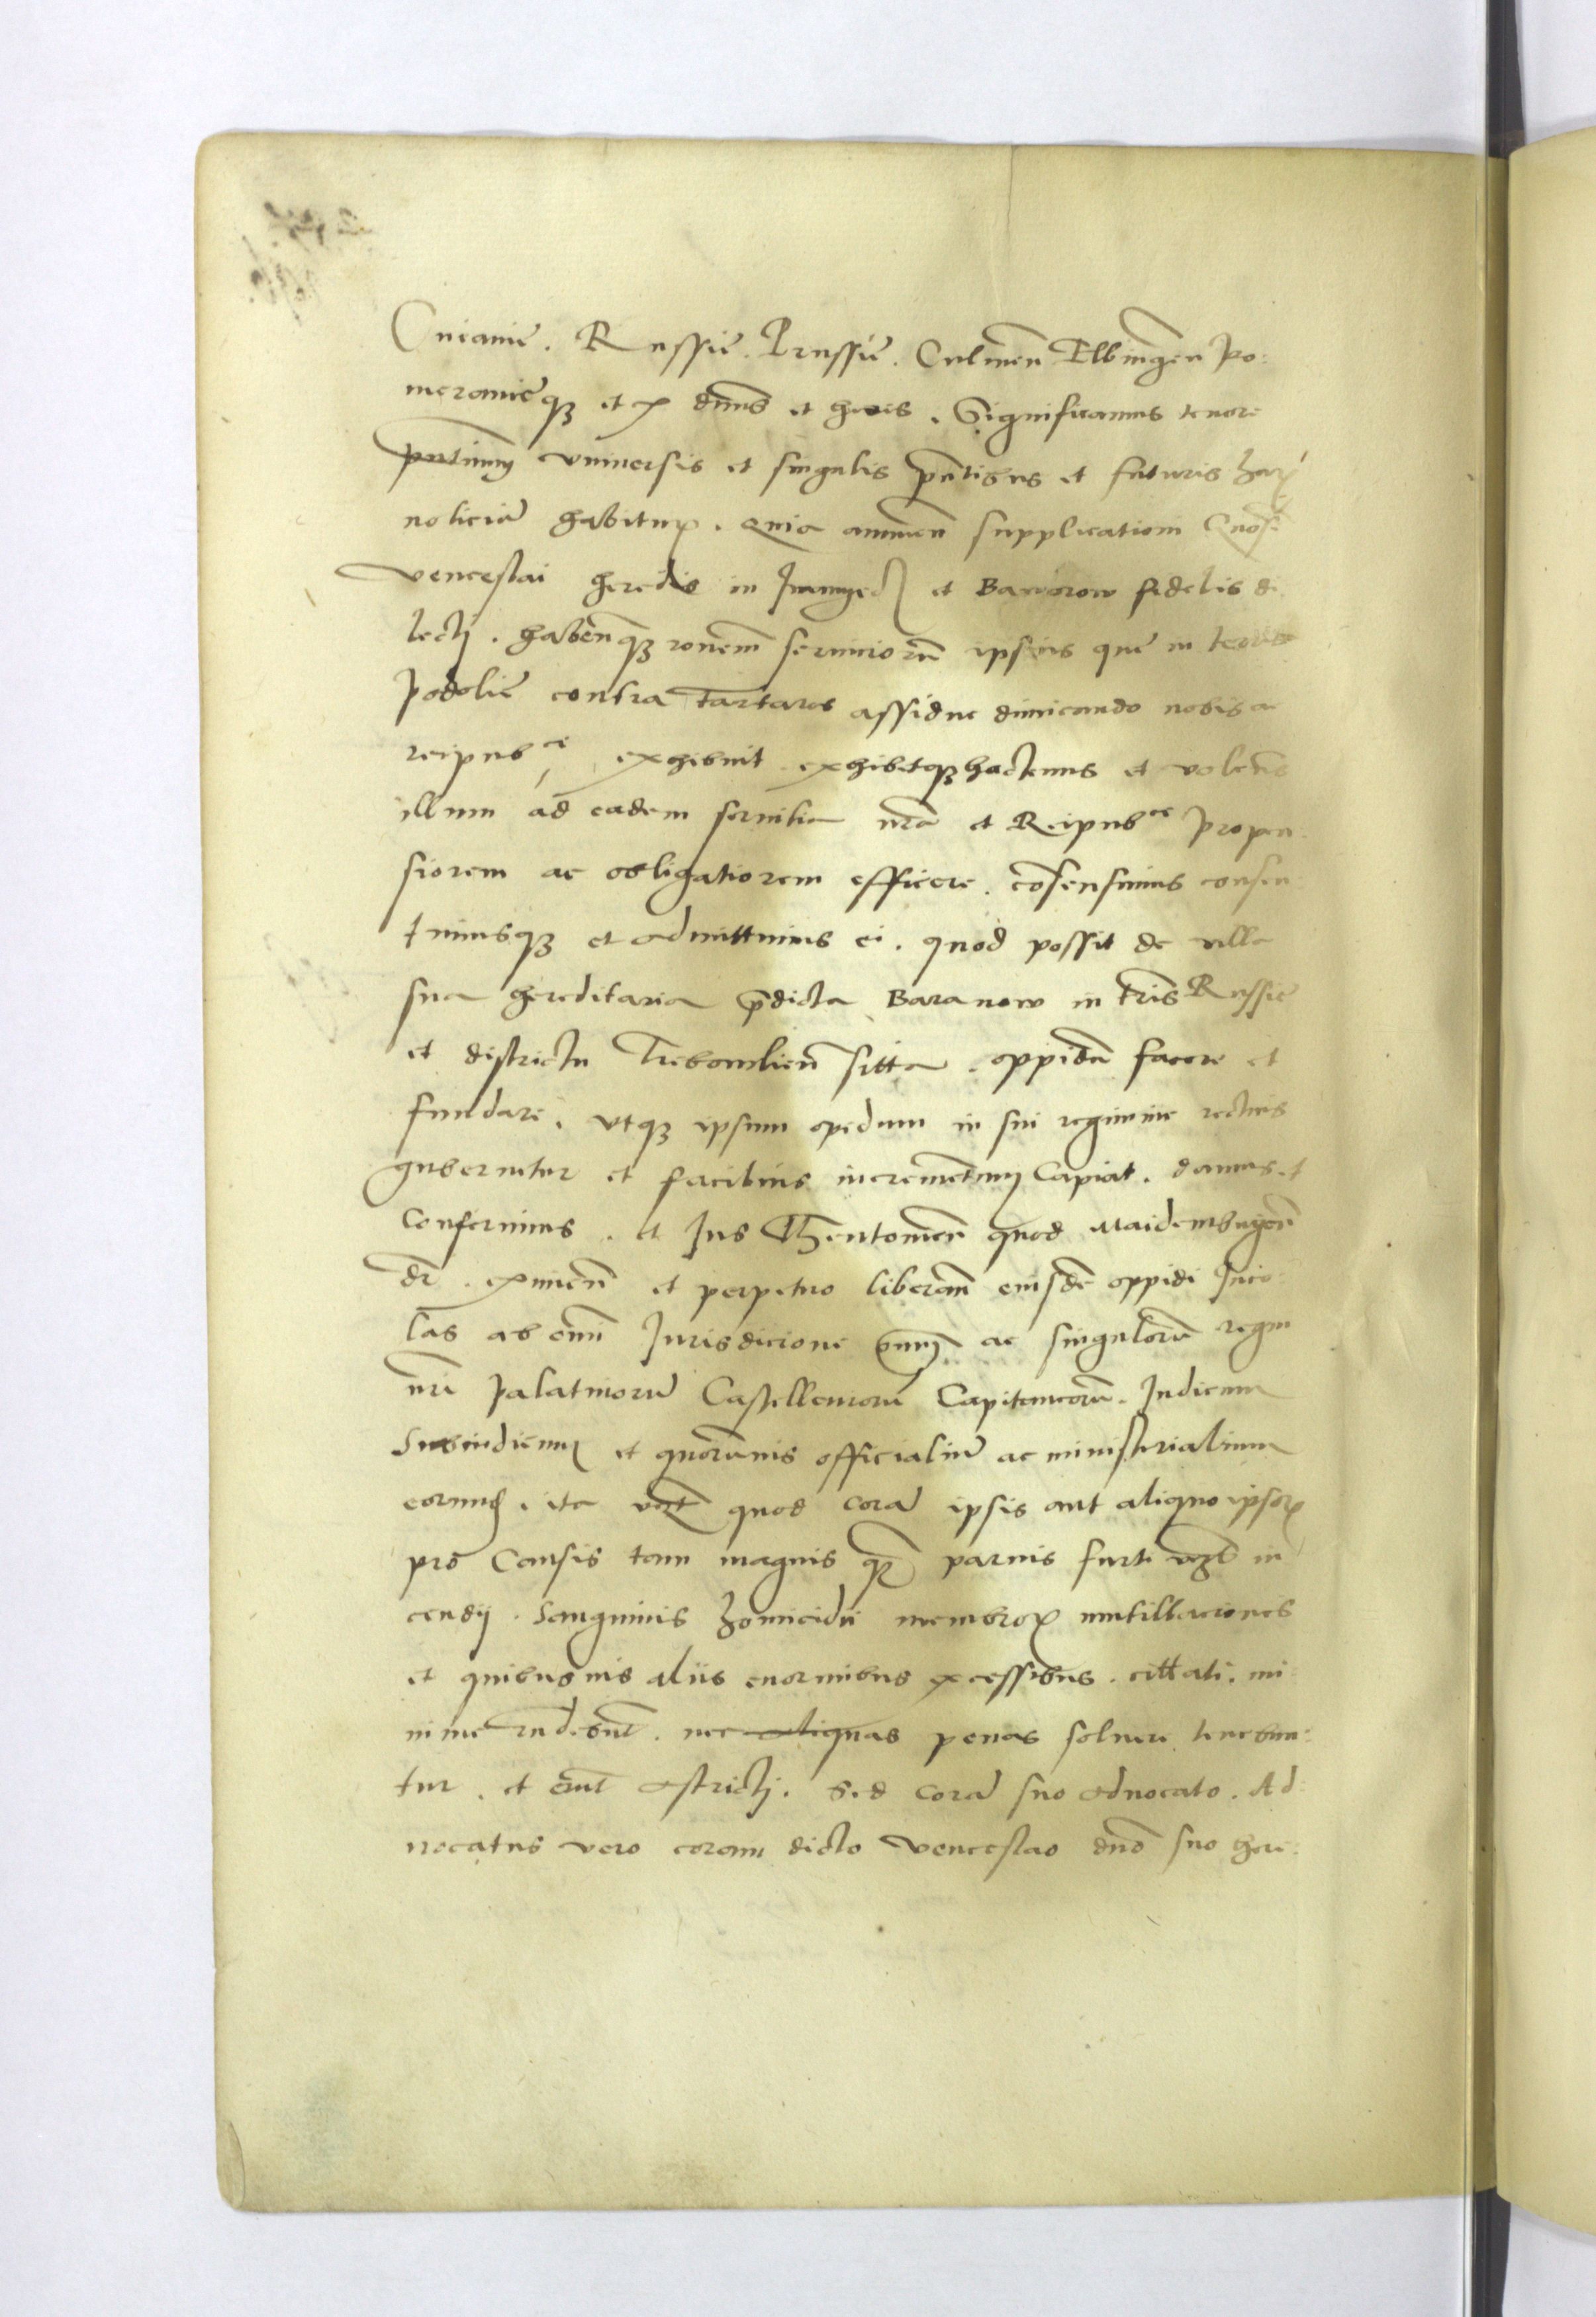 Cuiavie . Russie . Prussie . Culmen Elbingen Po:
meranieq3 et c dnus et heres . Significamus tenore
pntium vniversis et singulis pntibus et futuris har
noticiã habitur . Quia annuen supplicationi Gnosi
venceslai heredis in et Baworow fidelis di
lecti . habenq3 ronem seruiciorũ ipsius que in terris
podolie contra Tartaros assidue dimicando nobis ac
reipub ce exhibuit exhibetq3 hactenus et volens
illum ad eadem servitia nra et Reipub ce propen
siorem ac obligatiorem efficere . cõsensimus consen:
timusq3 et admittimus ei . quod possit de villa
sua hereditaria pdicta Baranow in tris Russie
et districtu Trebowlien sitta . oppidũ facere et
fundare . vtq3 ipsum opidum in sui regimine rectius
gubernetur et facilius incrementum Capiat . damus et
conferimus . et Jus Theutonicũ quod Maidemburgen
dr . eximen et perpetuo liberam eiusdẽ oppidi Inco:
las ab omni Jurisdicione omnium ac singulorũ regni
nri Palatinorũ Castellanorũ Capitaneorũ . Judicum
Subiudicum et quorũuis officialiũ ac ministerialium
eorund . ita vt quod corã ipsis aut aliquo ipsor
pro Causis tam magnis q parvis furti in
cendij . Sanguinis homicidii membror mutillaciones
et quibusuis aliis enormibus excessibus . cittati . mi:
nime rndebunt . nec aliquas penas soluere tenebun:
tur . et erunt astricti . Sed Corã suo aduocato . Ad:
uocatus vero coram dicto venceslao dno suo here: